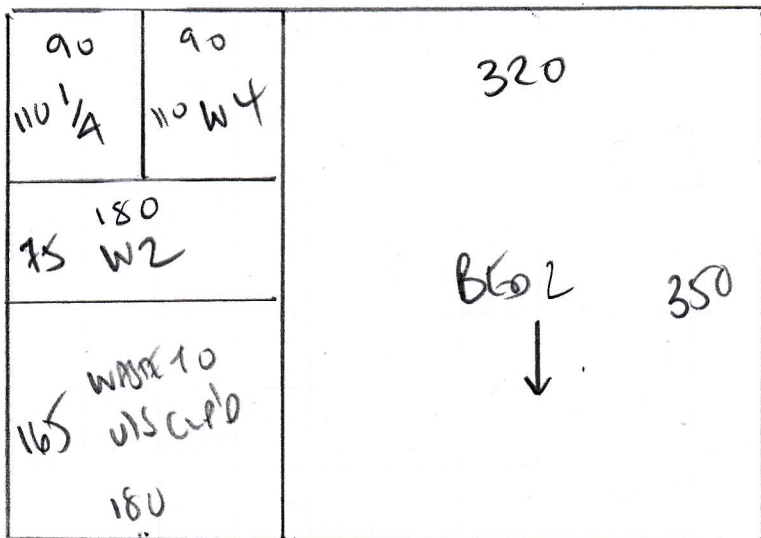 90
110 1/4
90
110 W4
180
75 W2
165
WASTE TO
U/S CUP'D
180
320
BED 2
350